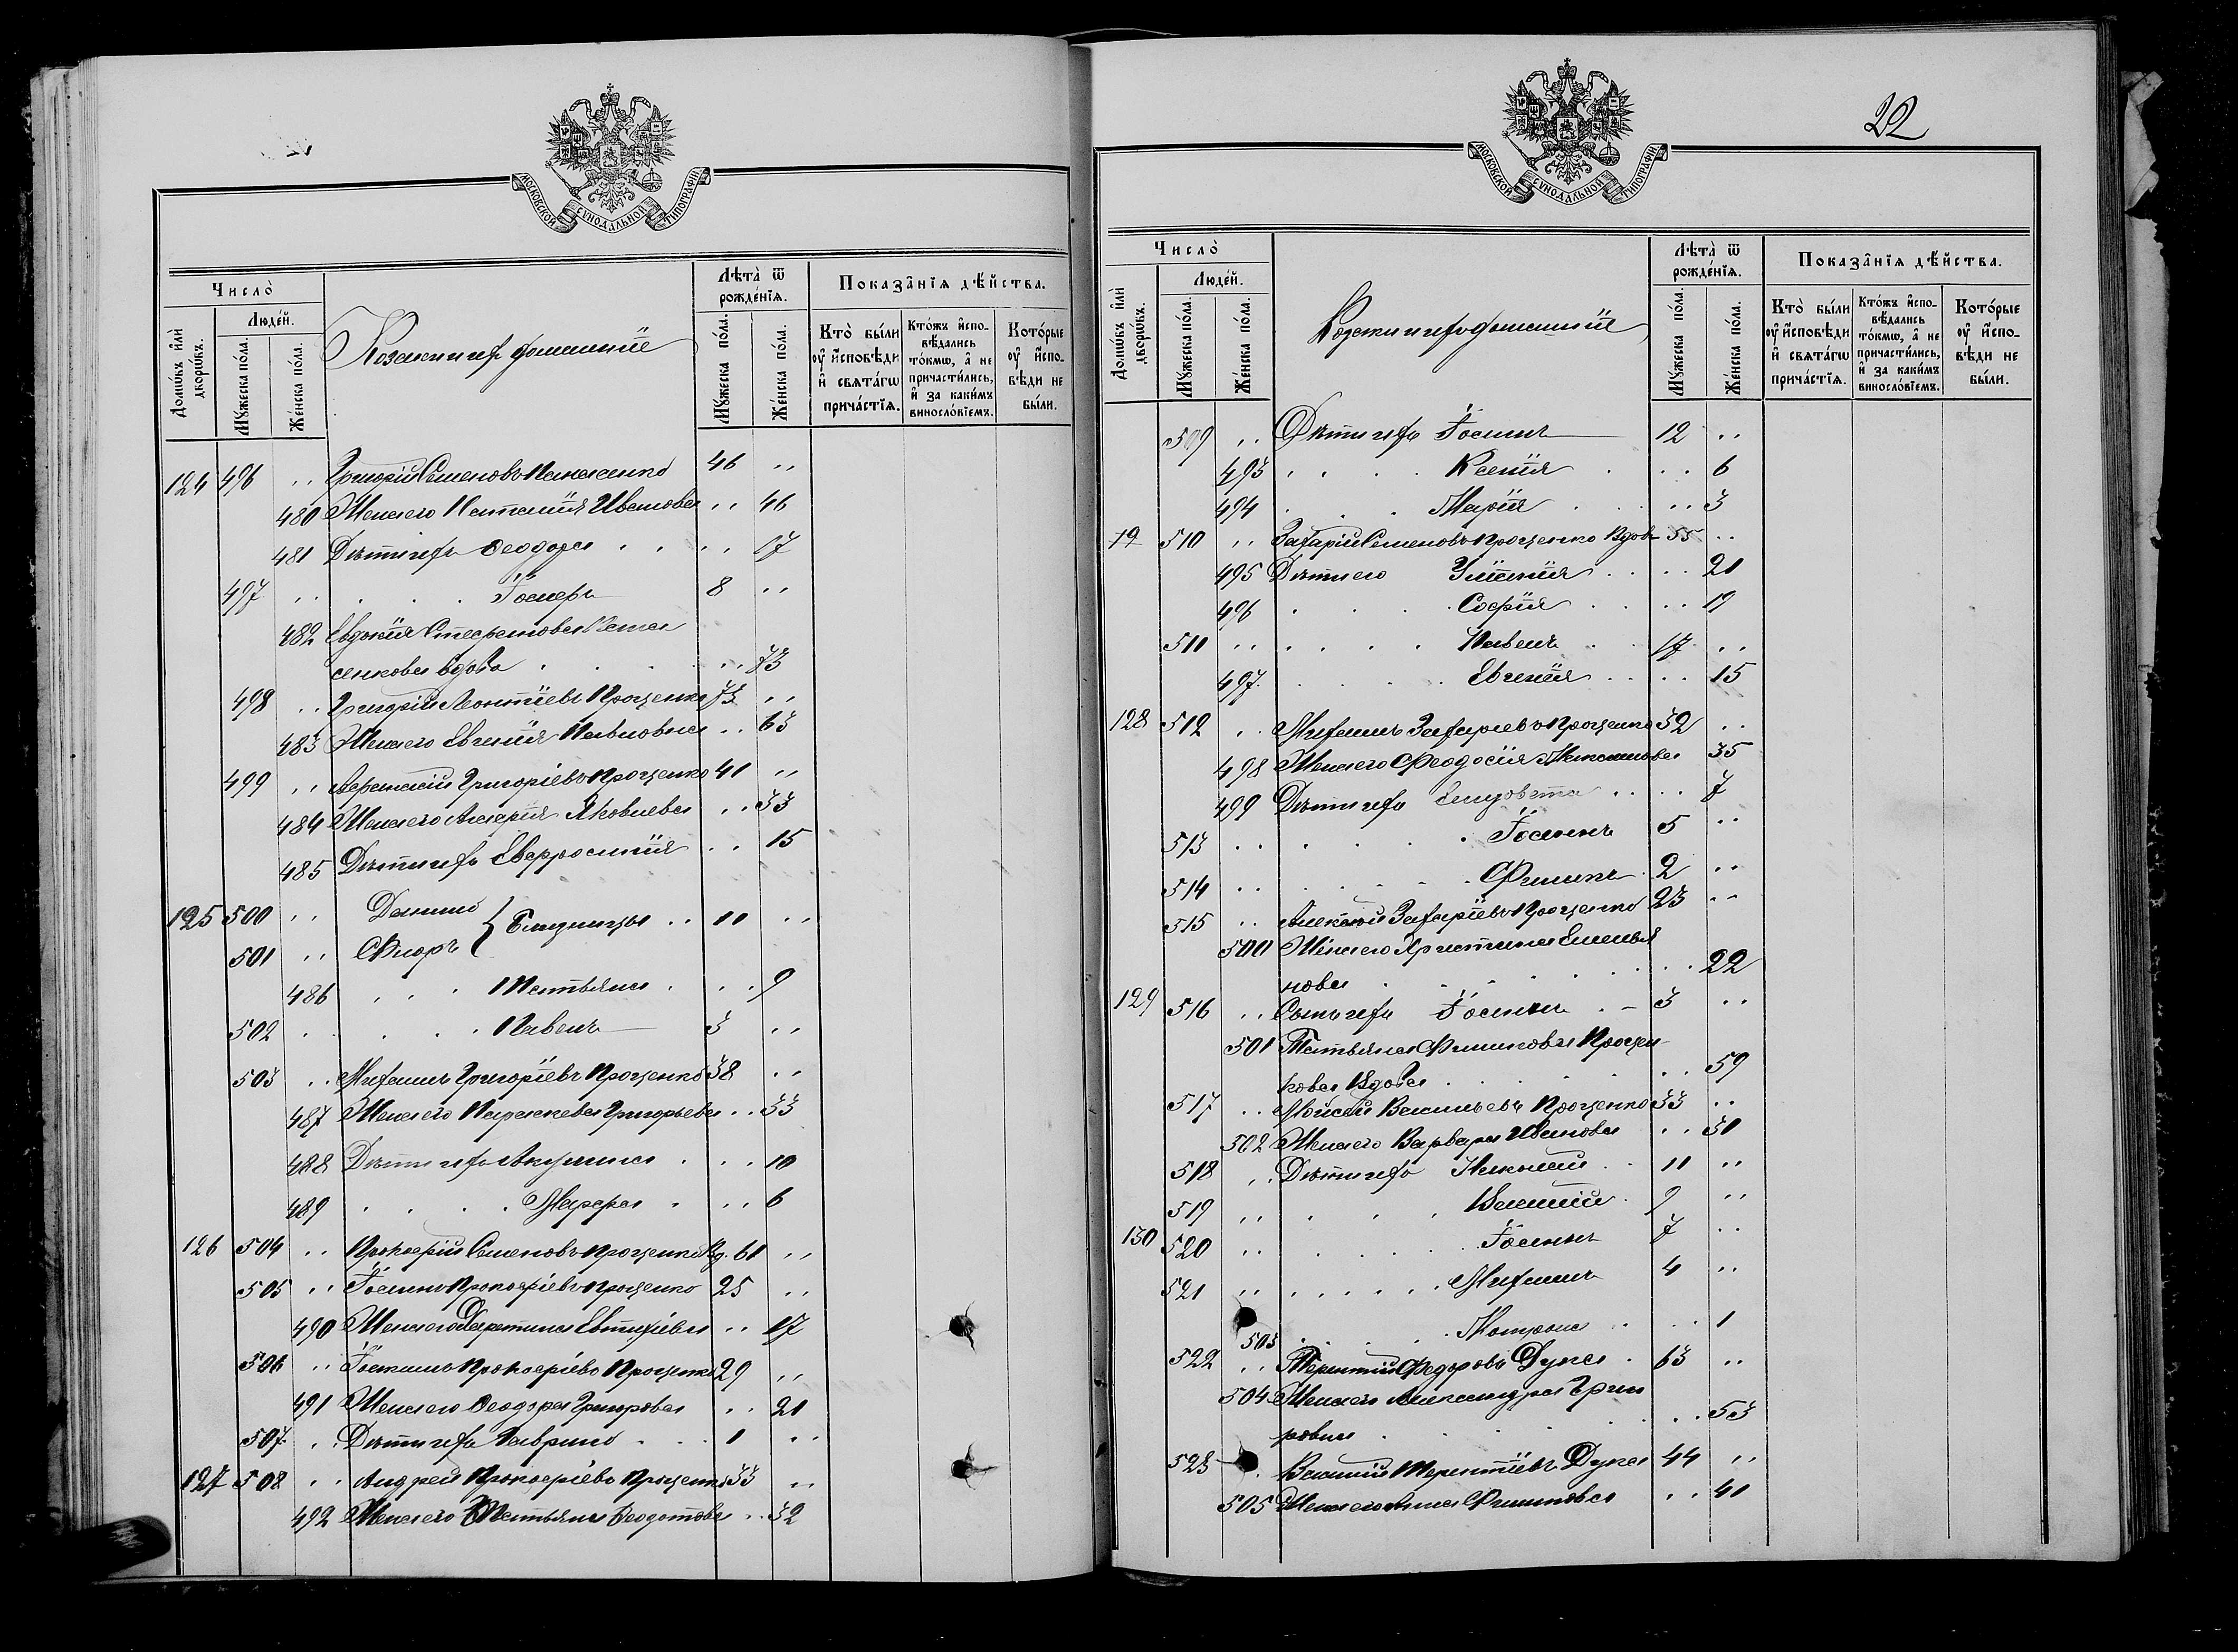 МОСКОВСКОЙ СУНОДАЛЬНОЙ ТИПОГРАФІИ
Число̀
Домѡ́въ и҆лѝ дворѡ́въ.
Люде́й.
Мꙋ́жеска по́ла.
Же́нска по́ла.
Козаки и ихъ фамиліи
Лѣта̀ ѿ рожде́нїѧ.
Мꙋ́жеска по́ла.
Же́нска по́ла.
Показа̑нїѧ дѣ́йства.
Кто̀ бы́ли ᲂу҆ и҆сповѣ́ди и҆ свѧта́гѡ прича́стїѧ.
Кто́жъ и҆спо-вѣ́дались то́кмѡ, а҆ не причасти́лись, и҆ за каки́мъ винослѡ́вїемъ.
Кото́рые ᲂу҆ и҆спо-вѣ́ди не бы́ли.
124 496 ,, Григорій Семеновъ Панасенко 46 ,,
480 Жена его Наталія Иванова ,, 46
481 Дѣти ихъ Ѳеодора ,, 17
497 ,, Іосифъ 8 ,,
482 Евдокія Стефанова Пана
сенкова вдова ,, 73
498 ,, Григорій Леонтіевъ Проценко 73 ,,
483 Жена его Евгенія Павловна ,, 63
499 ,, Афанасій Григоріевъ Проценко 41 ,,
484 Жена его Агафія Яковлева ,, 33
485 Дѣти ихъ Евфросинія ,, 15
125 500 ,, Данило } Близнецы 11 ,,
501 ,, Флоръ
486 Татьяна ,, 9
502 Павелъ 3 ,,
503 ,, Михаилъ Григоріевъ Проценко 38 ,,
487 Жена его Параскева Григорьева ,, 33
488 Дѣти ихъ Акулина ,, 10
489 Марфа ,, 6
126 504 ,, Прокофій Семеновъ Проценко Вд. 61 ,,
505 ,, Іосифъ Прокофіевъ Проценко 25 ,,
490 Жена его Евтихіева ,, 17
506 ,, Прокофіевъ Проценко 29 ,,
491 Жена его Ѳеодора Григорова ,, 21
507 ,, Дѣти ихъ Гавриилъ 1 ,,
127 508 ,, Андрей Прокофіевъ Проценко 33 ,,
492 Жена его Татьяна Ѳеодотова ,, 32
22
МОСКОВСКОЙ СУНОДАЛЬНОЙ ТИПОГРАФІИ
Число̀
Домѡ́въ и҆лѝ дворѡ́въ.
Люде́й.
Мꙋ́жеска по́ла.
Же́нска по́ла.
Козаки и ихъ фамиліи
Лѣта̀ ѿ рожде́нїѧ.
Мꙋ́жеска по́ла.
Же́нска по́ла.
Показа̑нїѧ дѣ́йства.
Кто̀ бы́ли ᲂу҆ и҆сповѣ́ди и҆ свѧта́гѡ прича́стїѧ.
Кто́жъ и҆спо-вѣ́дались то́кмѡ, а҆ не причасти́лись, и҆ за каки́мъ винослѡ́вїемъ.
Кото́рые ᲂу҆ и҆спо-вѣ́ди не бы́ли.
509 ,, Дѣти ихъ 12 ,,
493 Ксенія ,, 6
494 Марія ,, 3
19 510 ,, Захарій Семеновъ Проценко Вдов 55 ,,
495 Дѣти его Улиянія ,, 21
496 Софія ,, 19
511 ,, Павелъ 17 ,,
497 Евгенія ,, 15
128 512 ,, Михаилъ Захаріевъ Проценко 32 ,,
498 Жена его Феодосія Максимова 35
499 Дѣти ихъ Елизовета ,, 7
513 ,, Іоаннъ 5 ,,
514 ,, Филипъ 2 ,,
515 ,, Алексѣй Захаріевъ Проценко 23 ,,
500 Жена его Христина Емелья
нова ,, 22
129 516 ,, Сынъ ихъ Іоаннъ 3 ,,
501 Татьяна Филипова Процен-
кова Вдова ,, 59
517 ,, Моисей Васильевъ Проценко 33 ,,
502 Жена его Варвара Иванова ,, 31
518 ,, Дѣти ихъ Николай 11 ,,
519 ,, Василій 9 ,,
130 520 ,, Іоаннъ 7 ,,
521 ,, Михаилъ 4 ,,
503 Матрона ,, 1
522 ,, Терентій Федоровъ Дука 63 ,,
504 Жена его Александра Григо
ровна ,, 53
523 Василій Терентіевъ Дука 44 ,,
505 Жена его Анна Филипова ,, 41